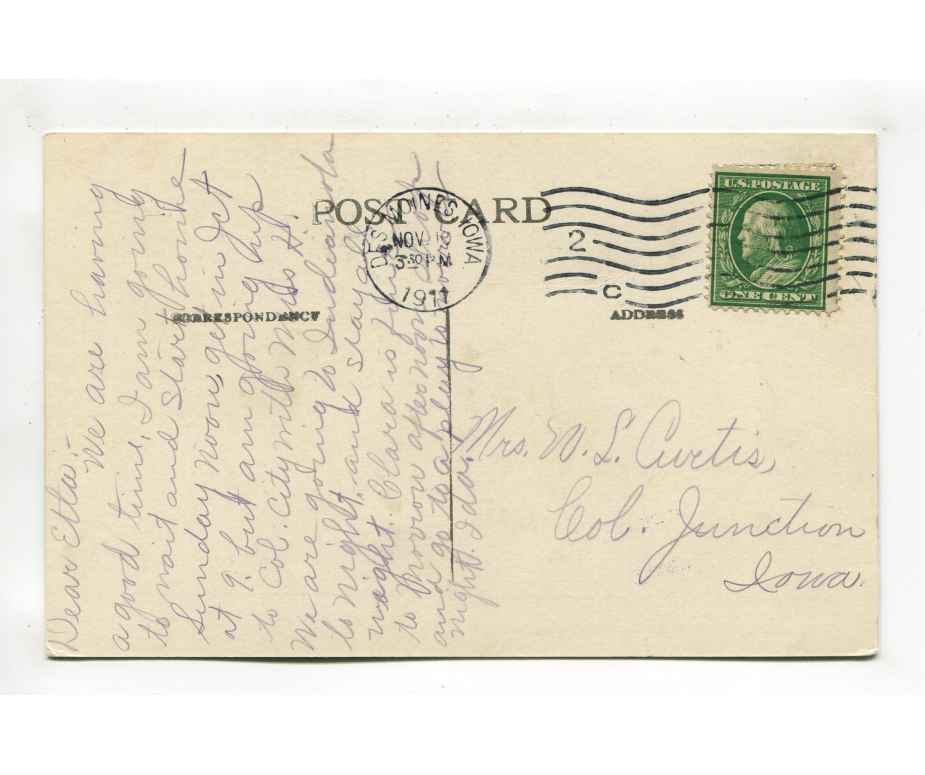 POST CARD
DES MOINES, IOWA.
NOV 18
3 30 P M
1911
2
C
U.S. POSTAGE
ONE CENT
CORRESPONDENCE
ADDRESS
Dear Etta:-
We are having
a good time, I am going
to wait and start home
Sunday noon, get in Jct
at 9. but am going up
to Col. City with Miss H.
We are going to Indianola
to night, and stay all
night. Clara is
to morrow afternoon
and go to a play
night. Ida.
Mrs. W. L. Curtis,
Col. Junction
Iowa.